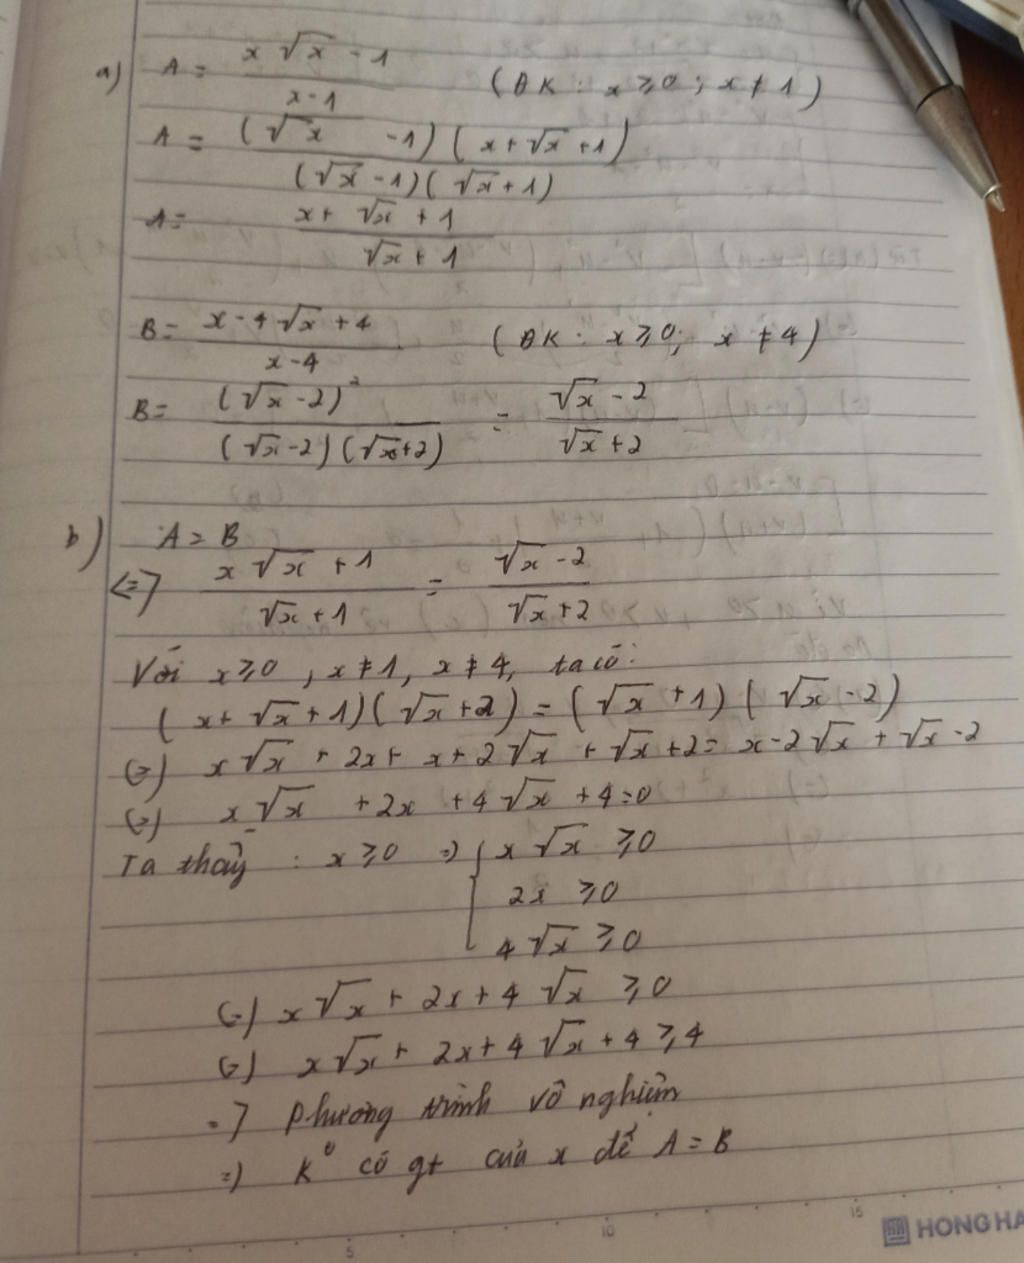 a) A = \frac{x\sqrt{x} - 1}{x - 1} (ĐK : x ⩾ 0 ; x ≠ 1)
A = \frac{(\sqrt{x} - 1)(x + \sqrt{x} + 1)}{(\sqrt{x} - 1)(\sqrt{x} + 1)}
A = \frac{x + \sqrt{x} + 1}{\sqrt{x} + 1}
B = \frac{x - 4\sqrt{x} + 4}{x - 4} (ĐK : x ⩾ 0; x ≠ 4)
B = \frac{(\sqrt{x} - 2)^2}{(\sqrt{x} - 2)(\sqrt{x} + 2)} = \frac{\sqrt{x} - 2}{\sqrt{x} + 2}
b) A = B
<=> \frac{x\sqrt{x} + 1}{\sqrt{x} + 1} = \frac{\sqrt{x} - 2}{\sqrt{x} + 2}
Với x ⩾ 0 , x ≠ 1, x ≠ 4, ta có:
(x + \sqrt{x} + 1)(\sqrt{x} + 2) = (\sqrt{x} + 1)(\sqrt{x} - 2)
(=) x\sqrt{x} + 2x + x + 2\sqrt{x} + \sqrt{x} + 2 = x - 2\sqrt{x} + \sqrt{x} - 2
(=) x\sqrt{x} + 2x + 4\sqrt{x} + 4 = 0
Ta thấy : x ⩾ 0 => { x\sqrt{x} ⩾ 0
2x ⩾ 0
4\sqrt{x} ⩾ 0
(=) x\sqrt{x} + 2x + 4\sqrt{x} ⩾ 0
(=) x\sqrt{x} + 2x + 4\sqrt{x} + 4 ⩾ 4
=> Phương trình vô nghiệm
=) K° có gt của x để A = B
5 10 15
HONG HA